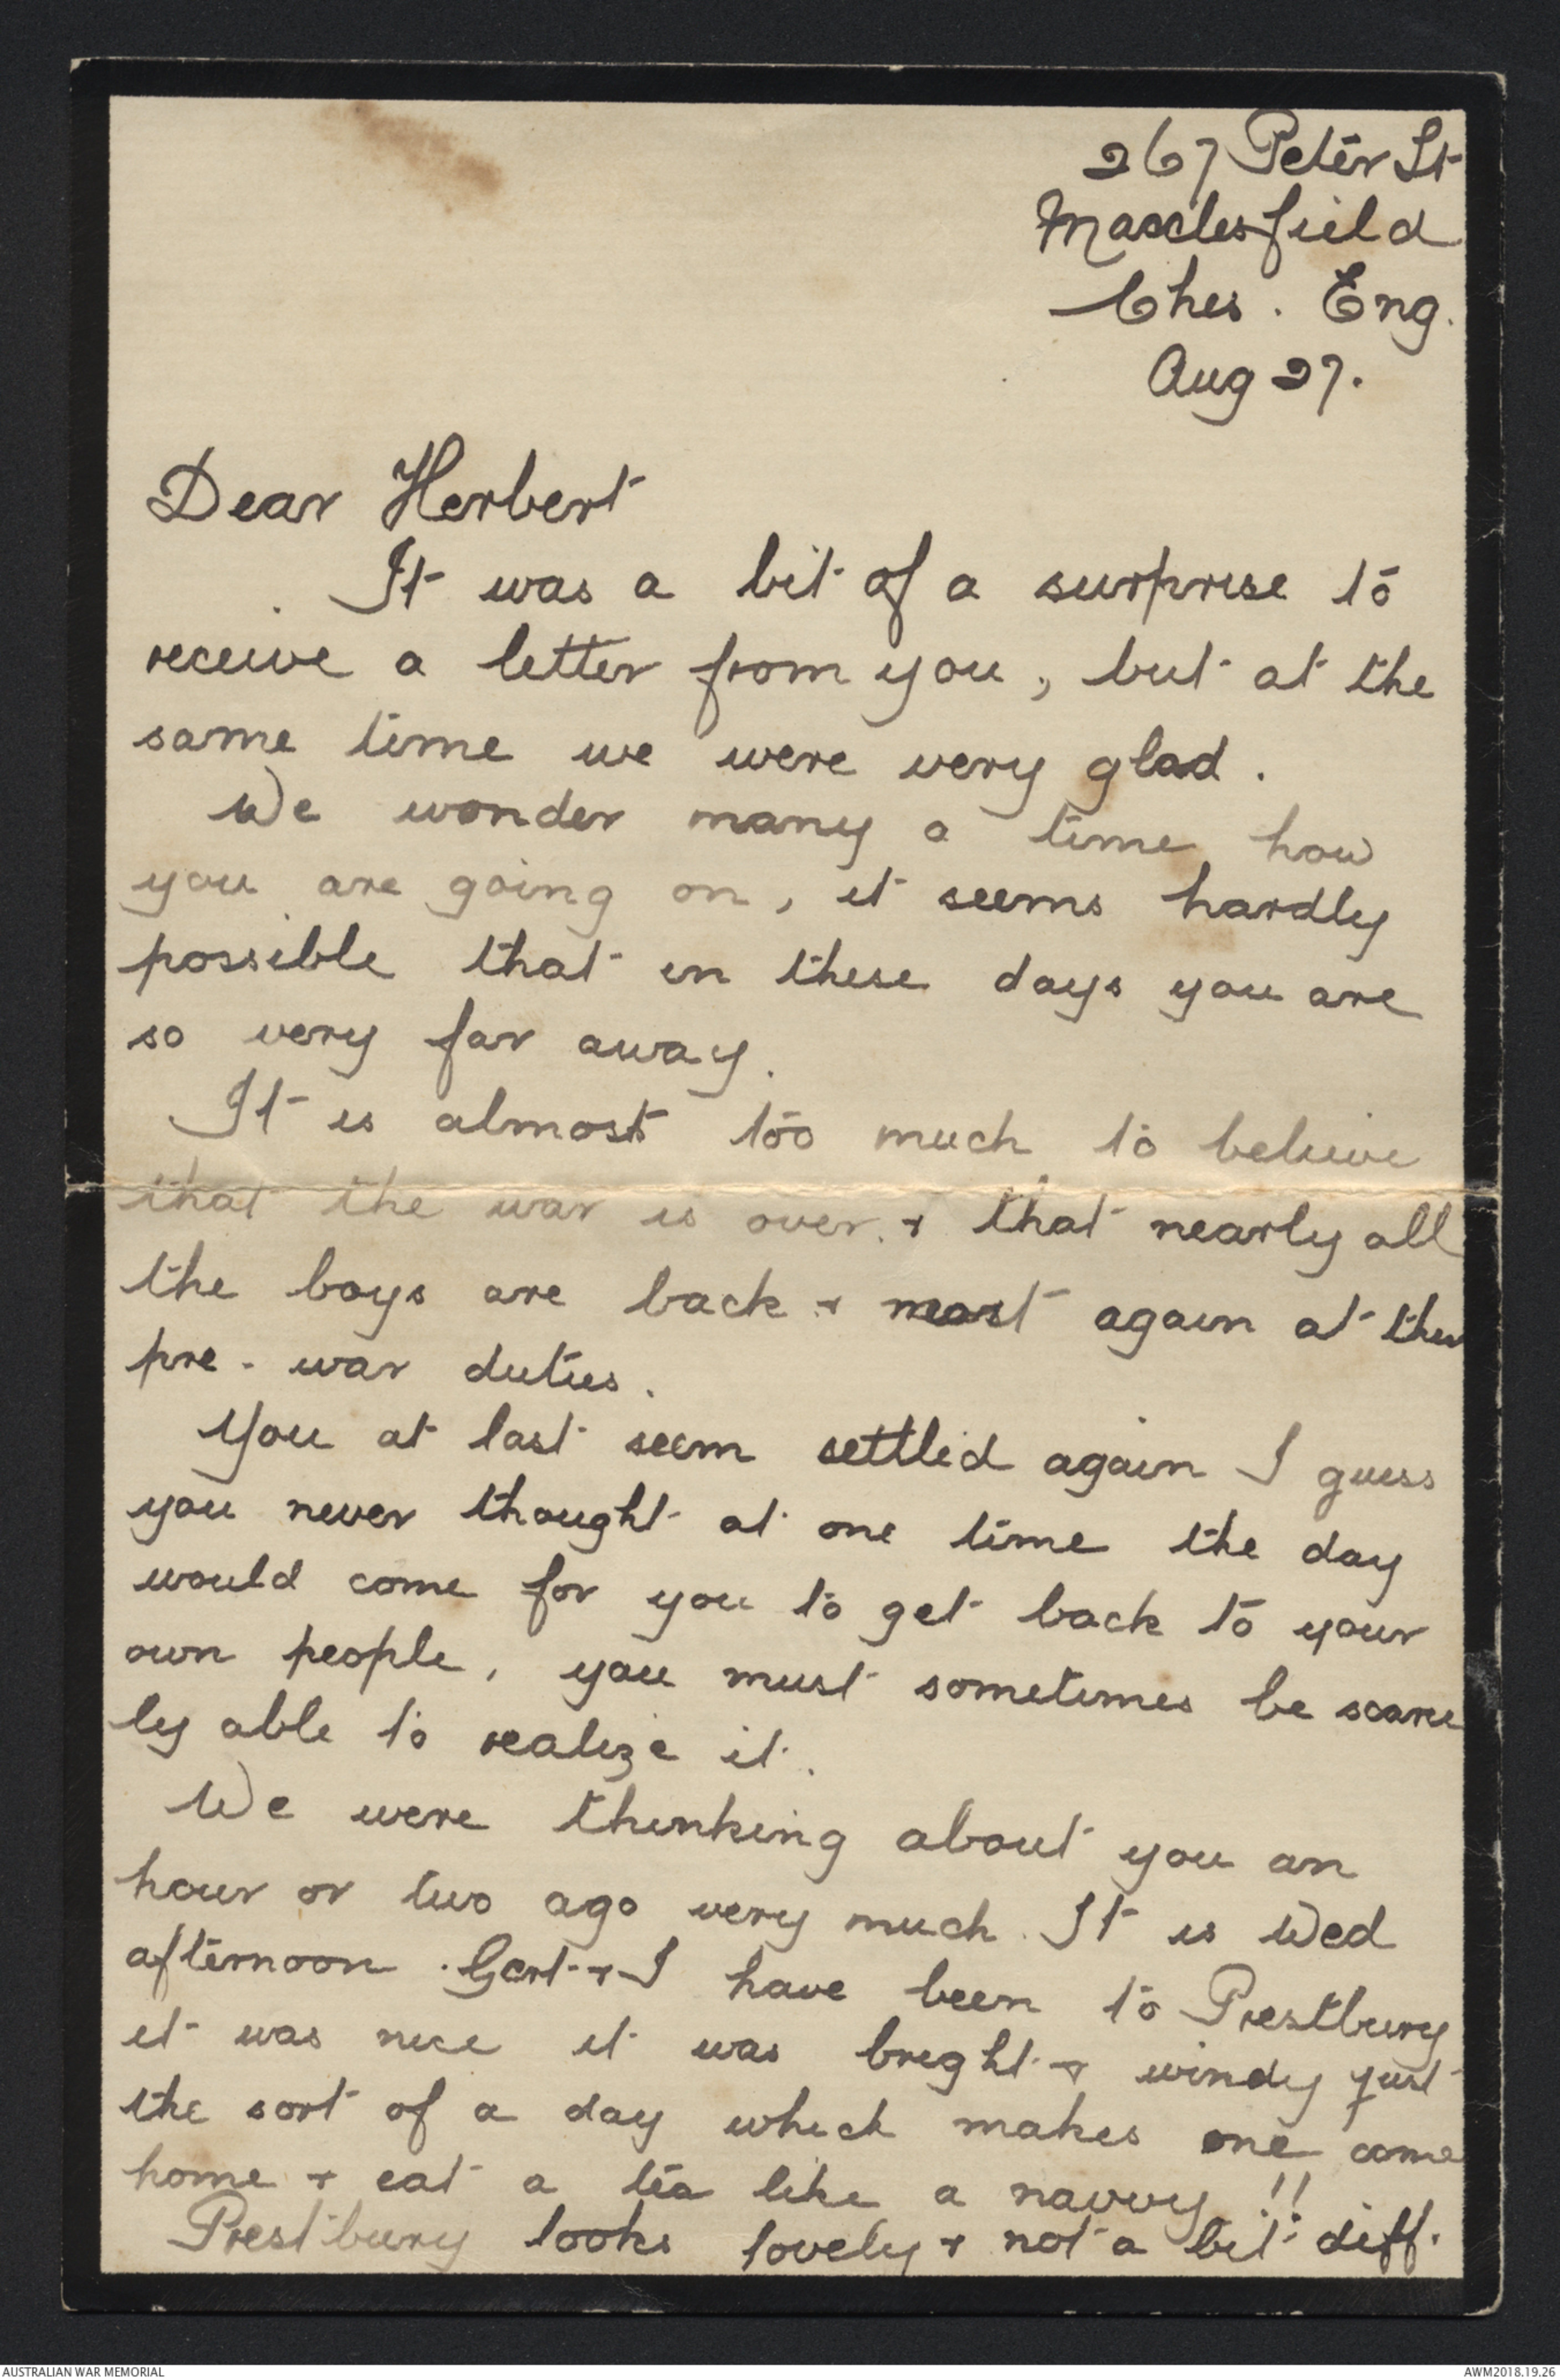 267 Peter St
Macclesfield
Ches. Eng.
Aug 27.
Dear Herbert
It was a bit of a surprise to
receive a letter from you, but at the
same time we were very glad.
We wonder many a time how
you are going on, it seems hardly
possible that in these days you are
so very far away.
It is almost too much to believe
that the war is over. & that nearly all
the boys are back & most again at their
pre-war duties.
You at last seem settled again I guess
you never thought at one time the day
would come for you to get back to your
own people, you must sometimes be scarce
ly able to realize it.
We were thinking about you an
hour or two ago very much. It is Wed
afternoon. Gert & I have been to Prestbury
it was nice it was bright & windy just
the sort of a day which makes one come
home & eat a tea like a navvy!!
Prestbury looks lovely & not a bit diff.
AUSTRALIAN WAR MEMORIAL
AWM2018.19.29